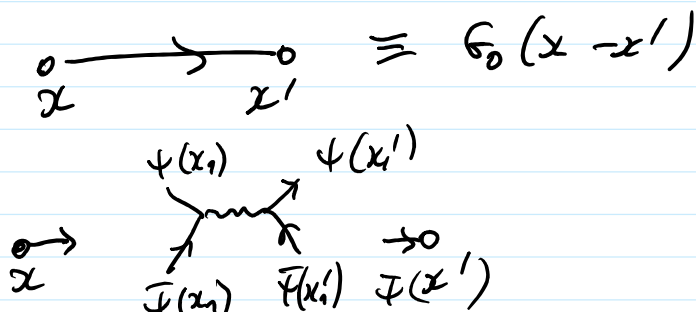 x x' ≡ G₀(x - x')
ψ(x₁) ψ(x₁')
x ψ̄(x₁) ψ̄(x₁') ψ̄(x')